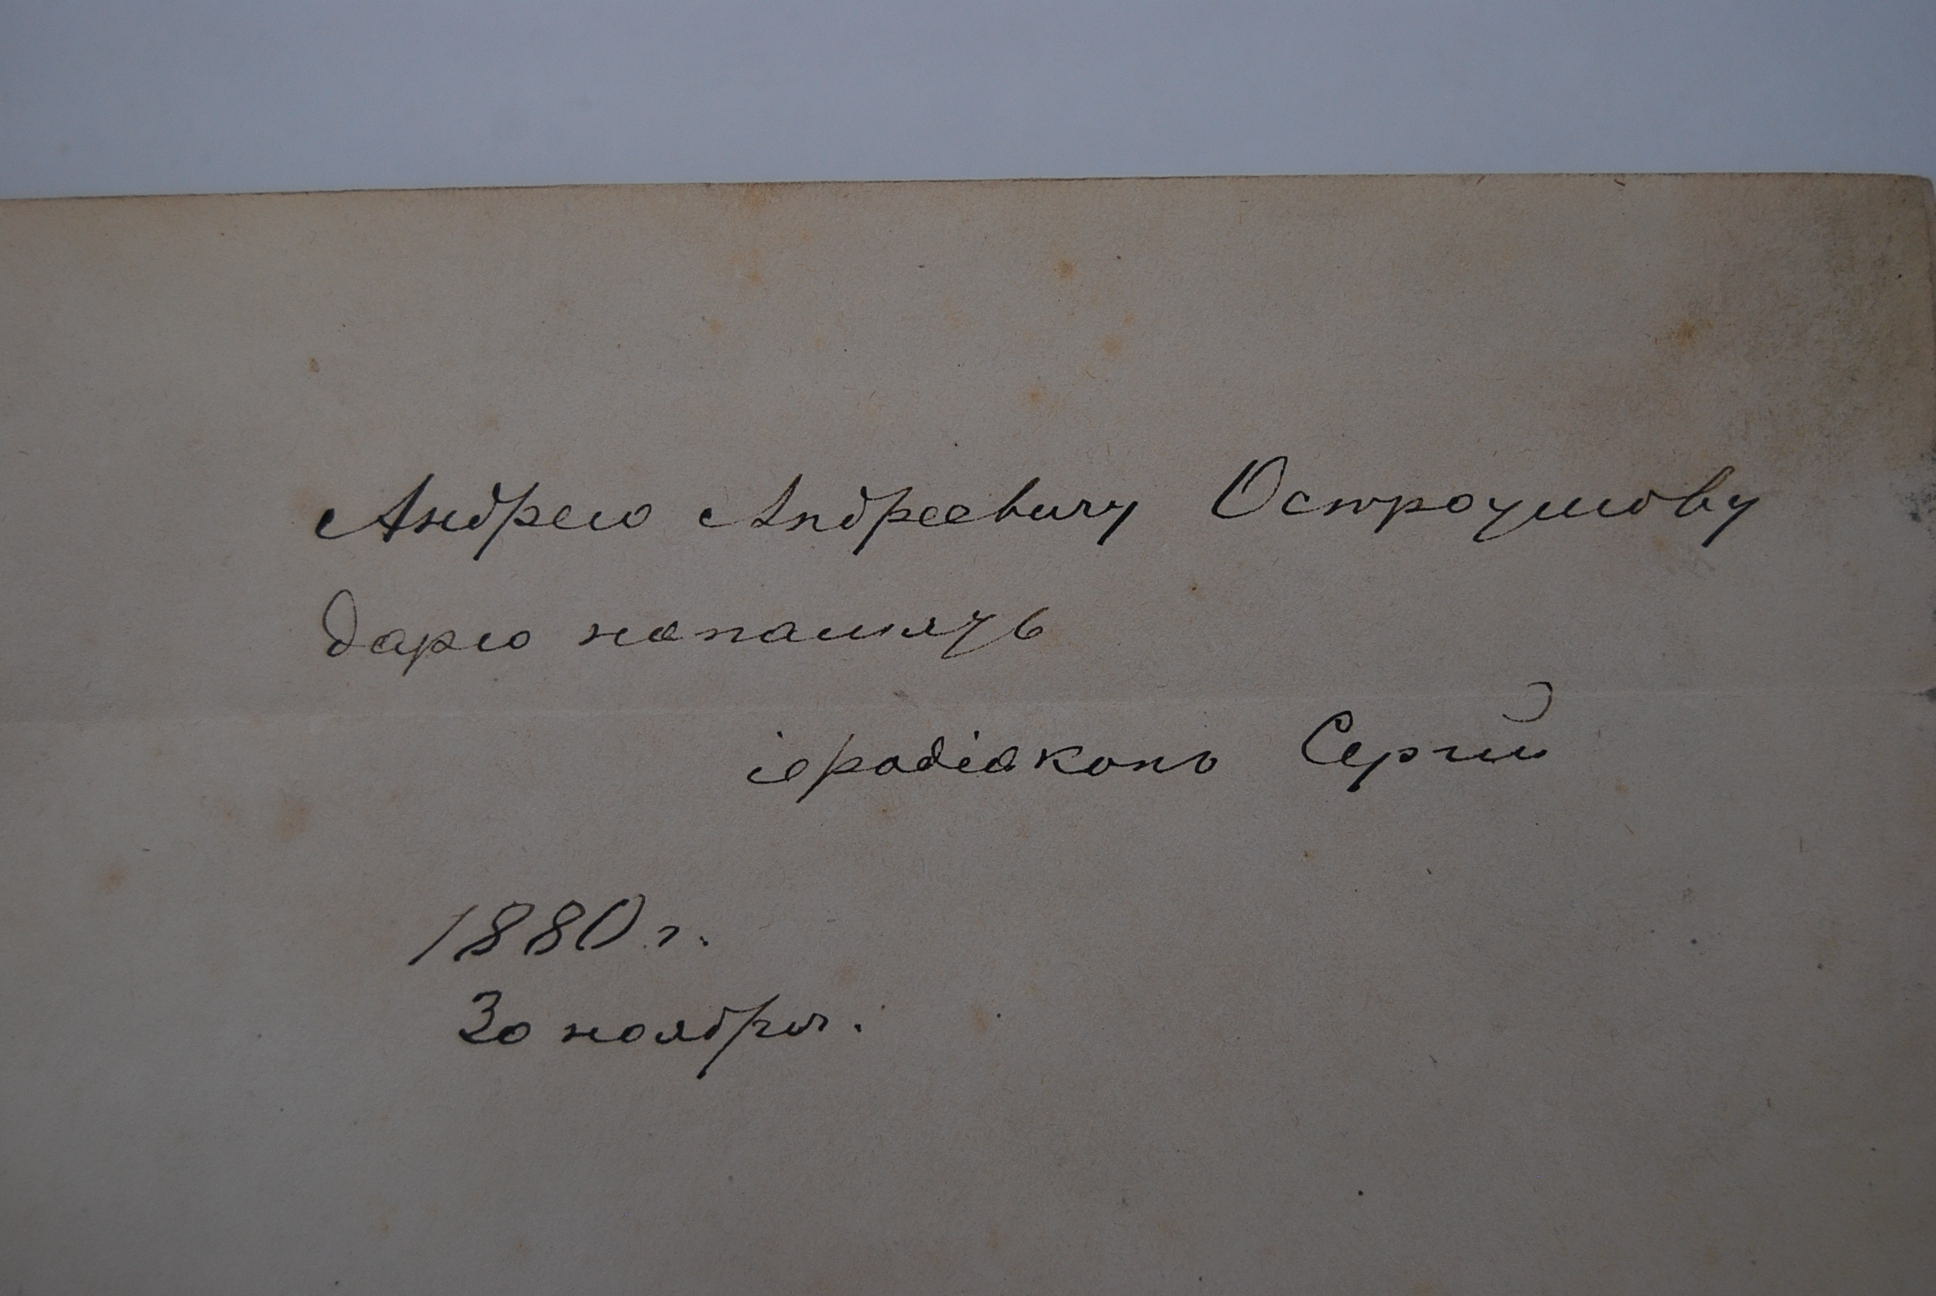 Андрею Андреевичу Остроумову
дарю напамять
іеродіаконъ Сергий
1880 г.
30 ноября.